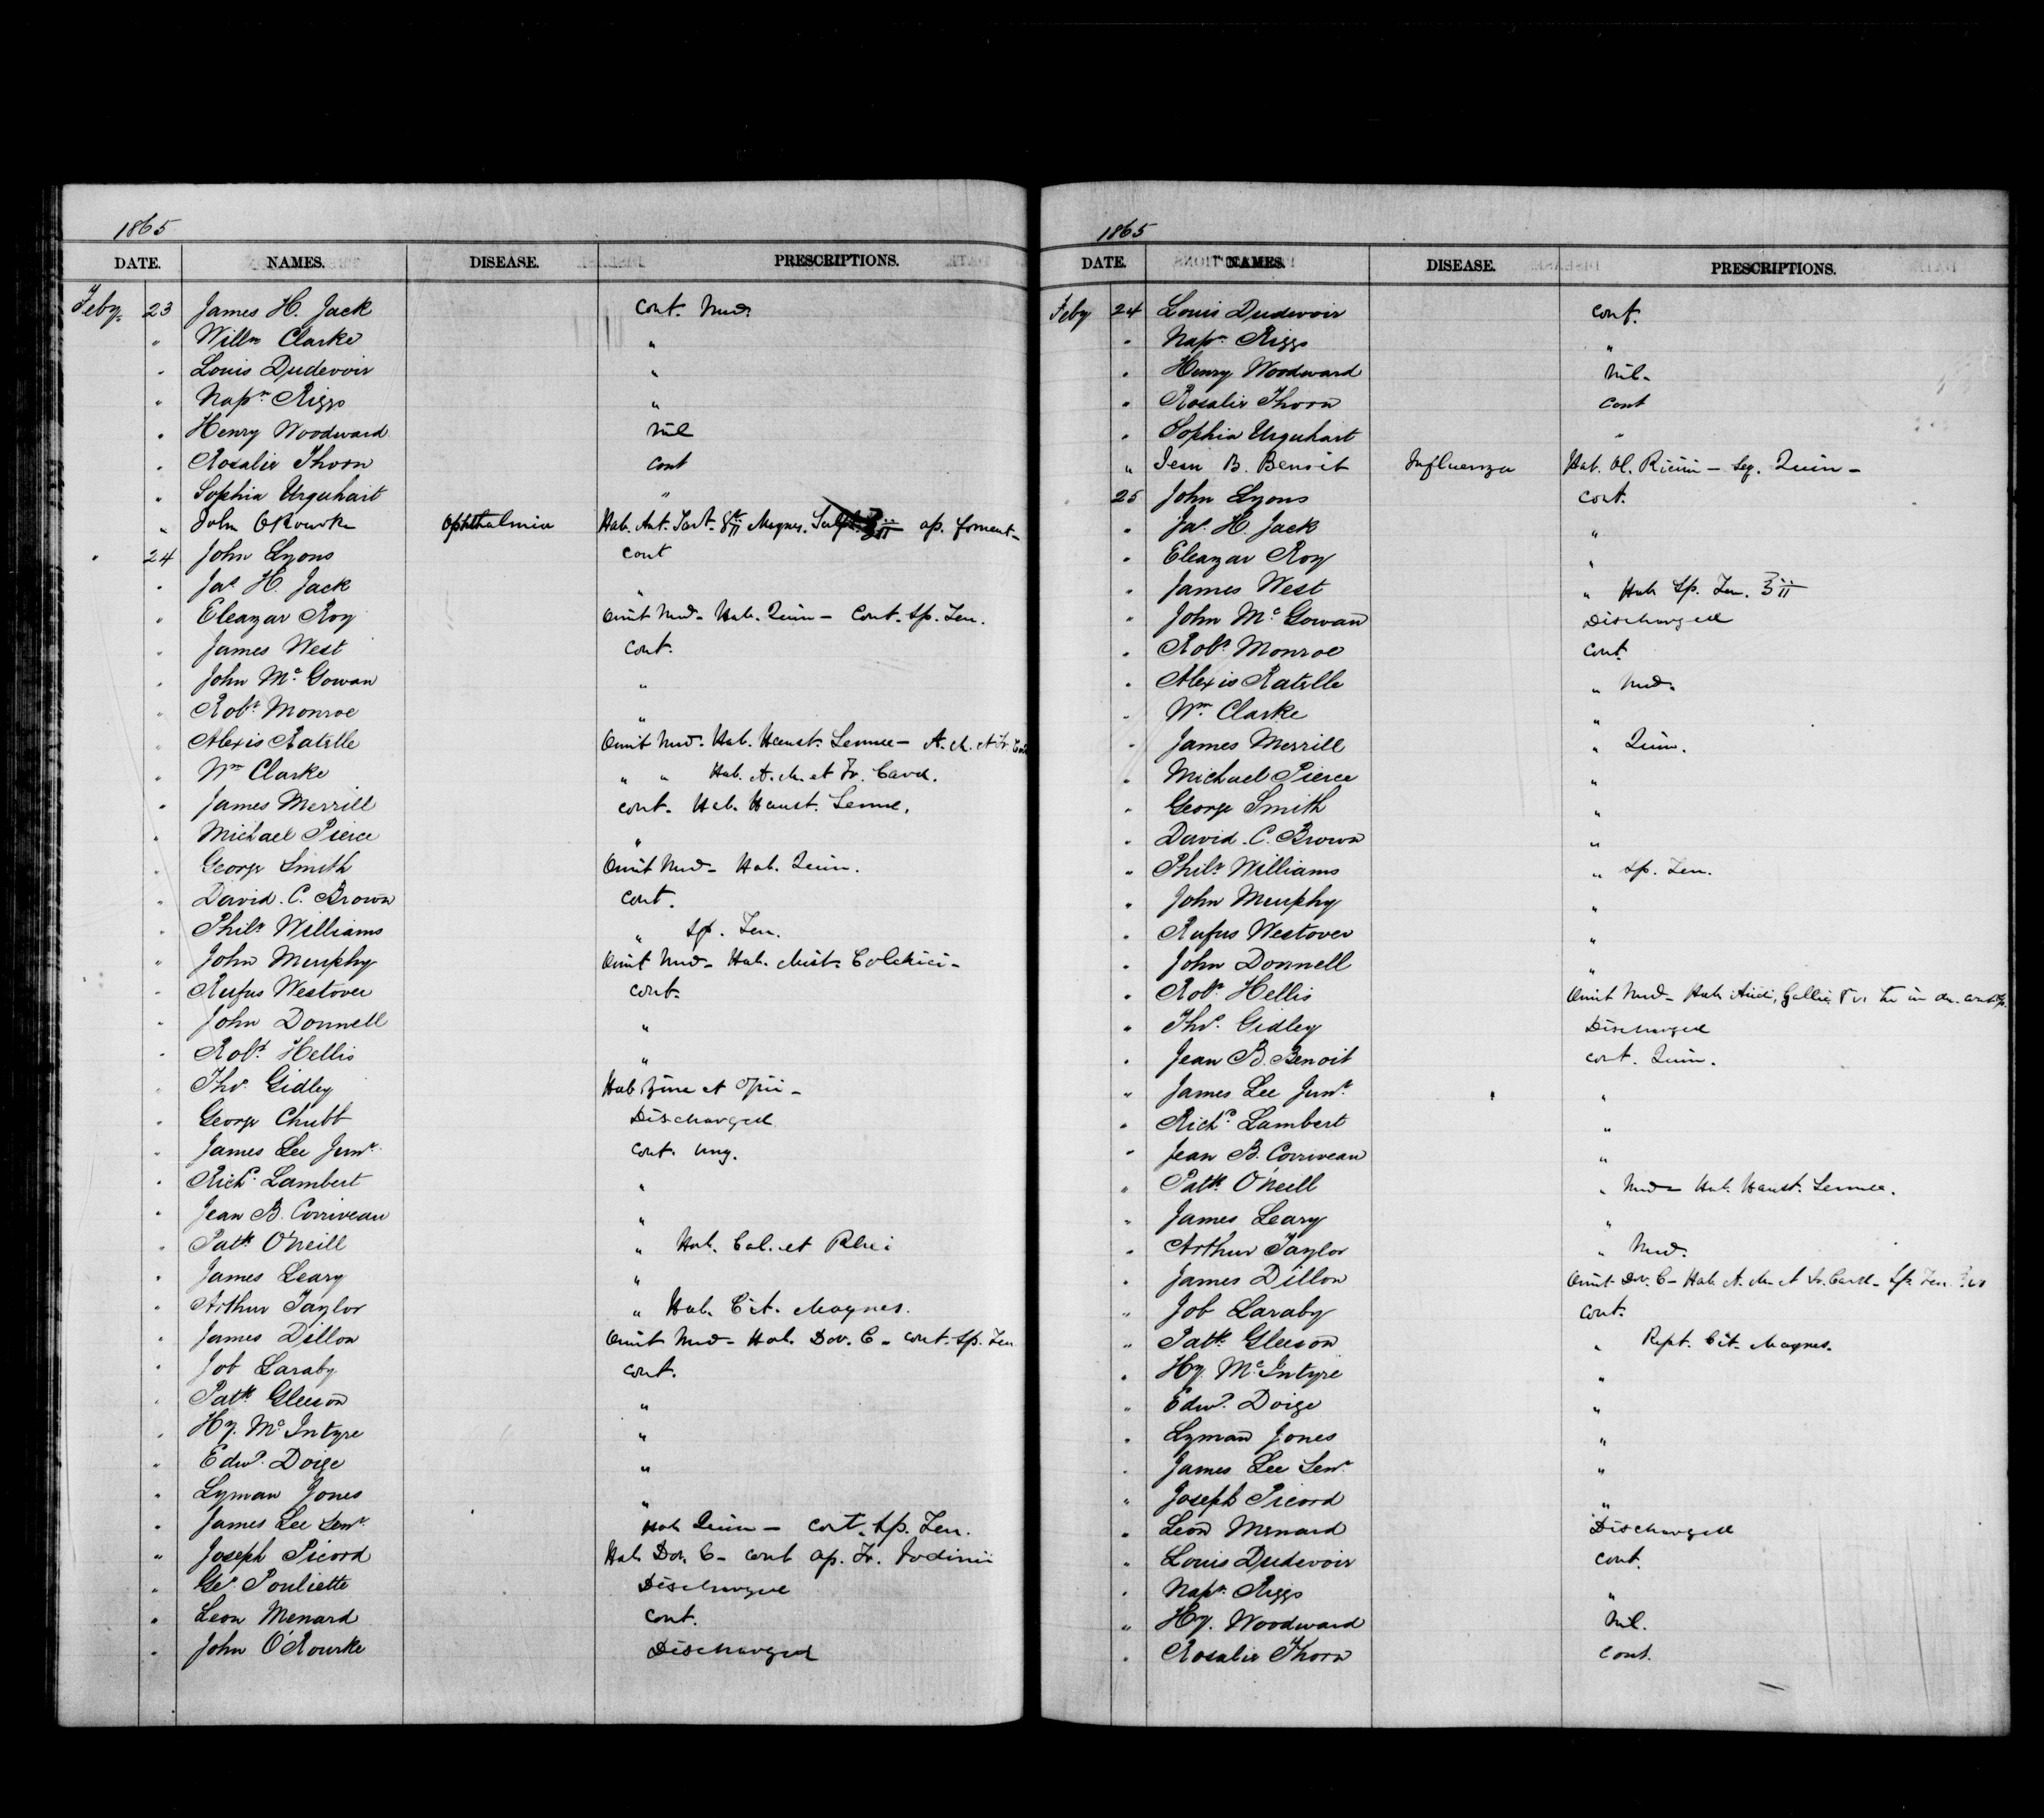 1865
DATE. NAMES. DISEASE. PRESCRIPTIONS.
Feby. 23 James H. Jack cont. Med.
" Willm Clarke "
" Louis Dudevoir "
" Napn. Riggs "
" Henry Woodward Nil
" Rosalie Thorn cont
" Sophia Urquhart "
" John O'Rourke Ophthalmia Hab. Ant. Tart. gr ii Magnes. Sulph. ℥ii ap. foment-
" 24 John Lyons cont
" Jas. H. Jack "
" Eleazar Roy Omit Med- Hab. Quin- Cont. Sp. Fru.
" James West cont.
" John Mc. Gowan "
" Robt. Monroe "
" Alexis Ratelle Omit Med. Hab. Haust. Sennae- A. M. et Tr.
" Wm Clarke " " Hab. A. M. et Tr. Card.
" James Merrill cont. Hab. Haust. Sennae.
" Michael Pierce "
" George Smith Omit Med- Hab. Quin.
" David. C. Brown cont.
" Philr. Williams " Sp. Fru.
" John Murphy Omit Med- Hab. Mist. Colchici-
" Rufus Westover cont.
" John Donnell "
" Robt. Hellis "
" Thos. Gidley Hab. Zinc et Opii-
" George Chubb Discharged
" James Lee Junr. cont. Ung.
" Richd. Lambert "
" Jean B. Corriveau "
" Patk. O'Neill " Hab. Cal. et Rhei
" James Leary "
" Arthur Taylor " Hab. Cit. Magnes.
" James Dillon Omit Med- Hab. Dov. C- cont. Sp. Fru
" Job Laraby cont.
" Patk. Gleeson "
" Hy. Mc. Intyre "
" Edwd. Doige "
" Lyman Jones "
" James Lee Senr. Hab Quin- cont. Sp. Fru.
" Joseph Picord Hab. Dov. C- cont ap. Tr. Iodinii
" Geo. Pouliette Discharged
" Leon Menard cont.
" John O'Rourke Discharged
1865
DATE. NAMES. DISEASE. PRESCRIPTIONS.
Feby 24 Louis Dudevoir cont.
" Napn. Riggs "
" Henry Woodward Nil-
" Rosalie Thorn cont
" Sophia Urquhart "
" Jean B. Benoit Influenza Hab. Ol. Ricini- Seq. Quin-
25 John Lyons cont.
" Jas. H. Jack "
" Eleazar Roy "
" James West " Hab Sp. Fru. ℥ii
" John Mc. Gowan Discharged
" Robt. Monroe cont.
" Alexis Ratelle " Med.
" Wm. Clarke "
" James Merrill " Quin.
" Michael Pierce "
" George Smith "
" David. C. Brown "
" Philr. Williams " Sp. Fru.
" John Murphy "
" Rufus Westover "
" John Donnell "
" Robt. Hellis Omit Med- Hab Acidi, Gallici gr v. ter in die.
" Thos. Gidley Discharged
" Jean B. Benoit cont. Quin.
" James Lee Junr. "
" Richd. Lambert "
" Jean B. Corriveau "
" Patk. O'Neill " Med- Hab. Haust. Sennae.
" James Leary "
" Arthur Taylor " Med.
" James Dillon Omit Dov. C- Hab. A. M. et Tr. Card- Sp. Fru.
" Job Laraby cont.
" Patk. Gleeson " Rept. Cit. Magnes.
" Hy. Mc. Intyre "
" Edwd. Doige "
" Lyman Jones "
" James Lee Senr. "
" Joseph Picord "
" Leon Menard Discharged
" Louis Dudevoir cont.
" Napn. Riggs "
" Hy. Woodward Nil.
" Rosalie Thorn cont.